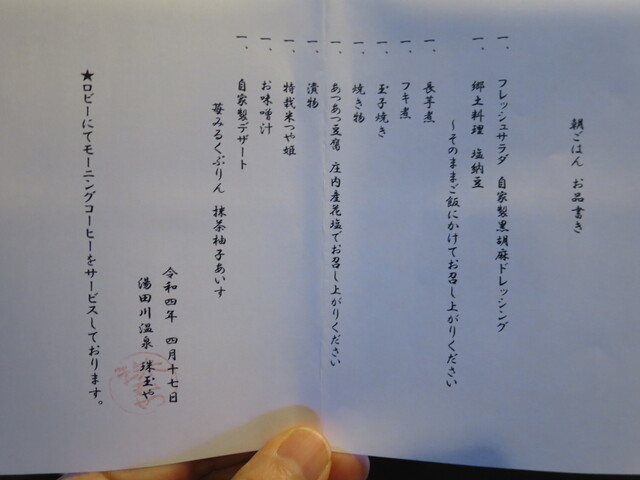 朝ごはん お品書き
一、 フレッシュサラダ 自家製黒胡麻ドレッシング
一、 郷土料理 塩納豆
～そのままご飯にかけてお召し上がりください
一、 長芋煮
一、 フキ煮
一、 玉子焼き
一、 焼き物
一、 あつあつ豆腐 庄内産花塩でお召し上がりください
一、 漬物
一、 特栽米つや姫
一、 お味噌汁
一、 自家製デザート
苺みるくぷりん 抹茶柚子あいす
令和四年 四月十七日
湯田川温泉 珠玉や
★ロビーにてモーニングコーヒーをサービスしております。